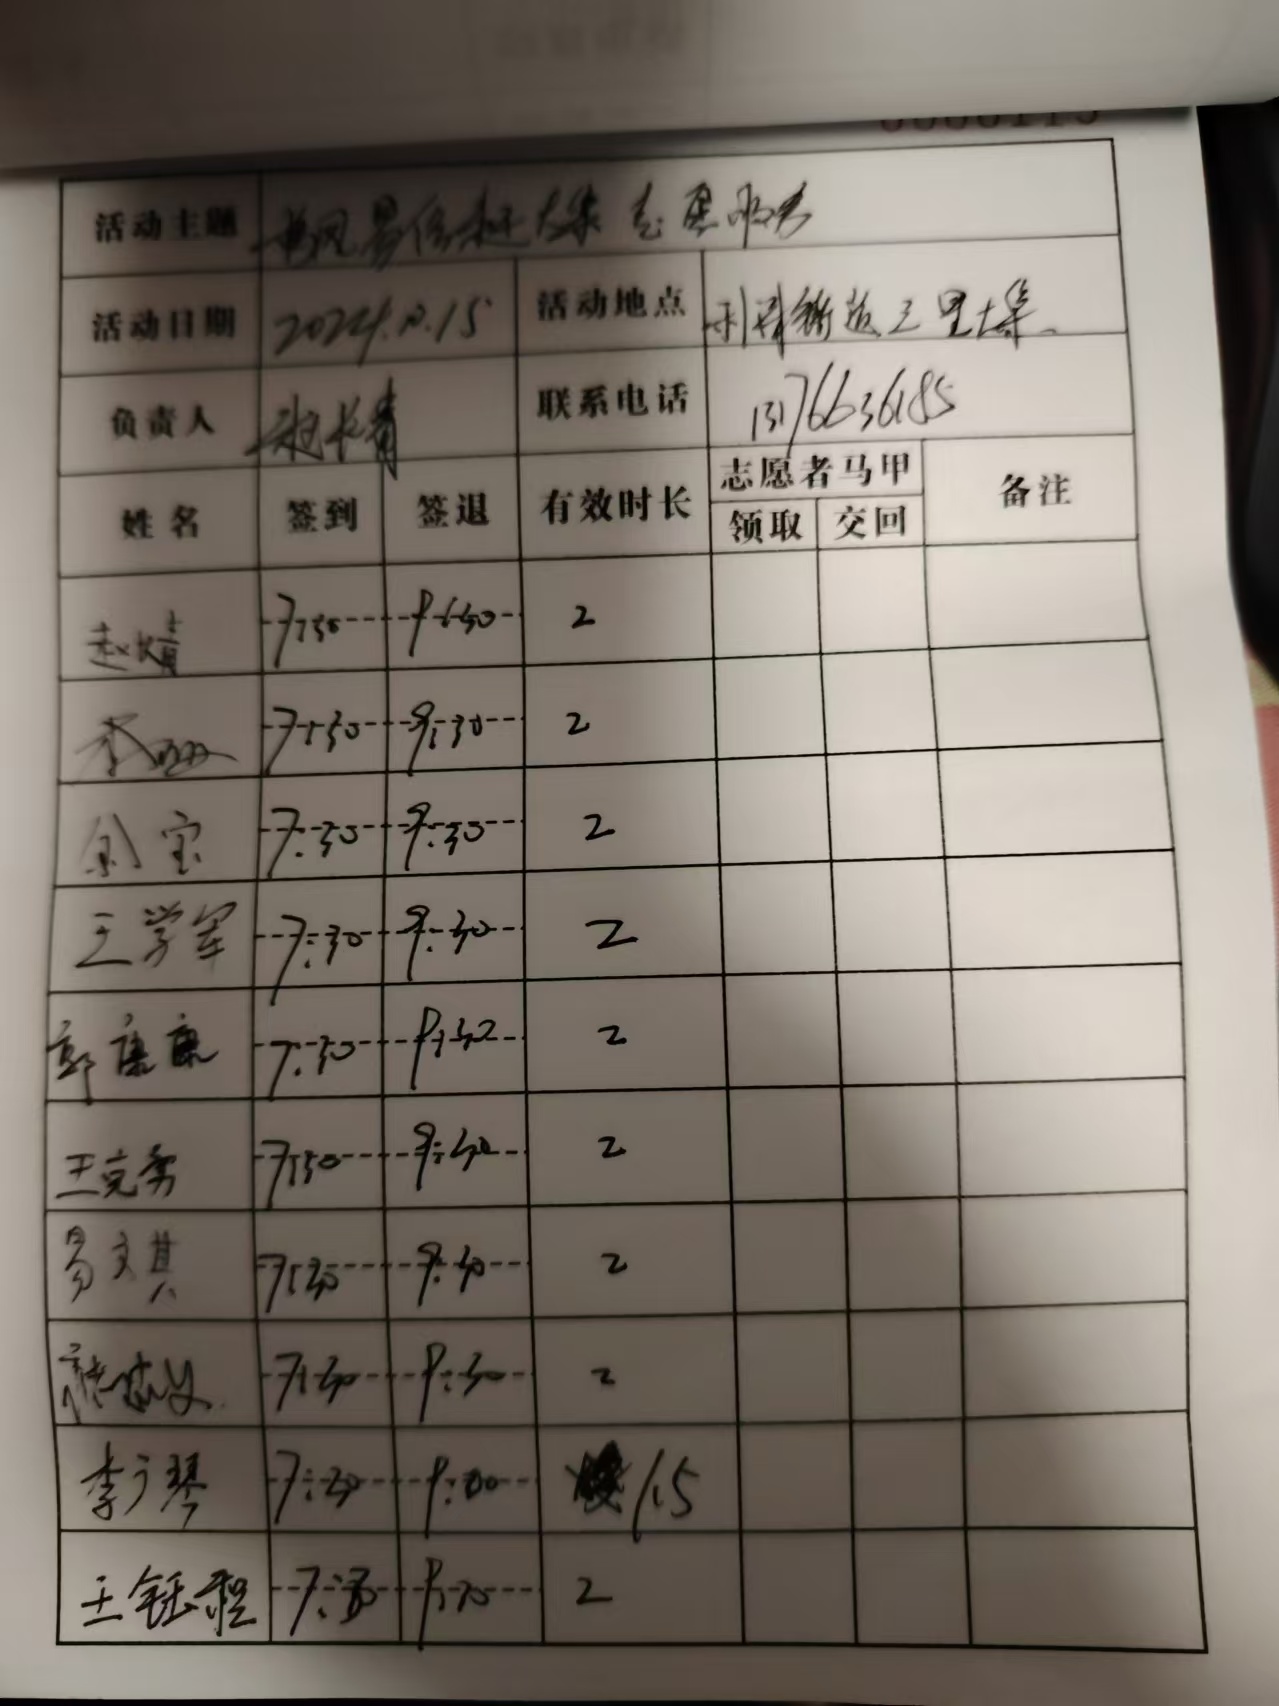 活动主题 易俗赶大集志愿服务
活动日期 2024.12.15 活动地点 三里大集
负责人 赵长青 联系电话 13176636185
姓名 签到 签退 有效时长 志愿者马甲 备注
领取 交回
赵长青 7:30 9:30 2
7:30 9:30 2
宝 7:30 9:30 2
王学军 7:30 9:30 2
郭康康 7:30 9:30 2
王克勇 7:30 9:30 2
易文其 7:30 9:30 2
7:30 9:30 2
李广琴 7:30 9:00 1.5
王钰程 7:30 9:30 2